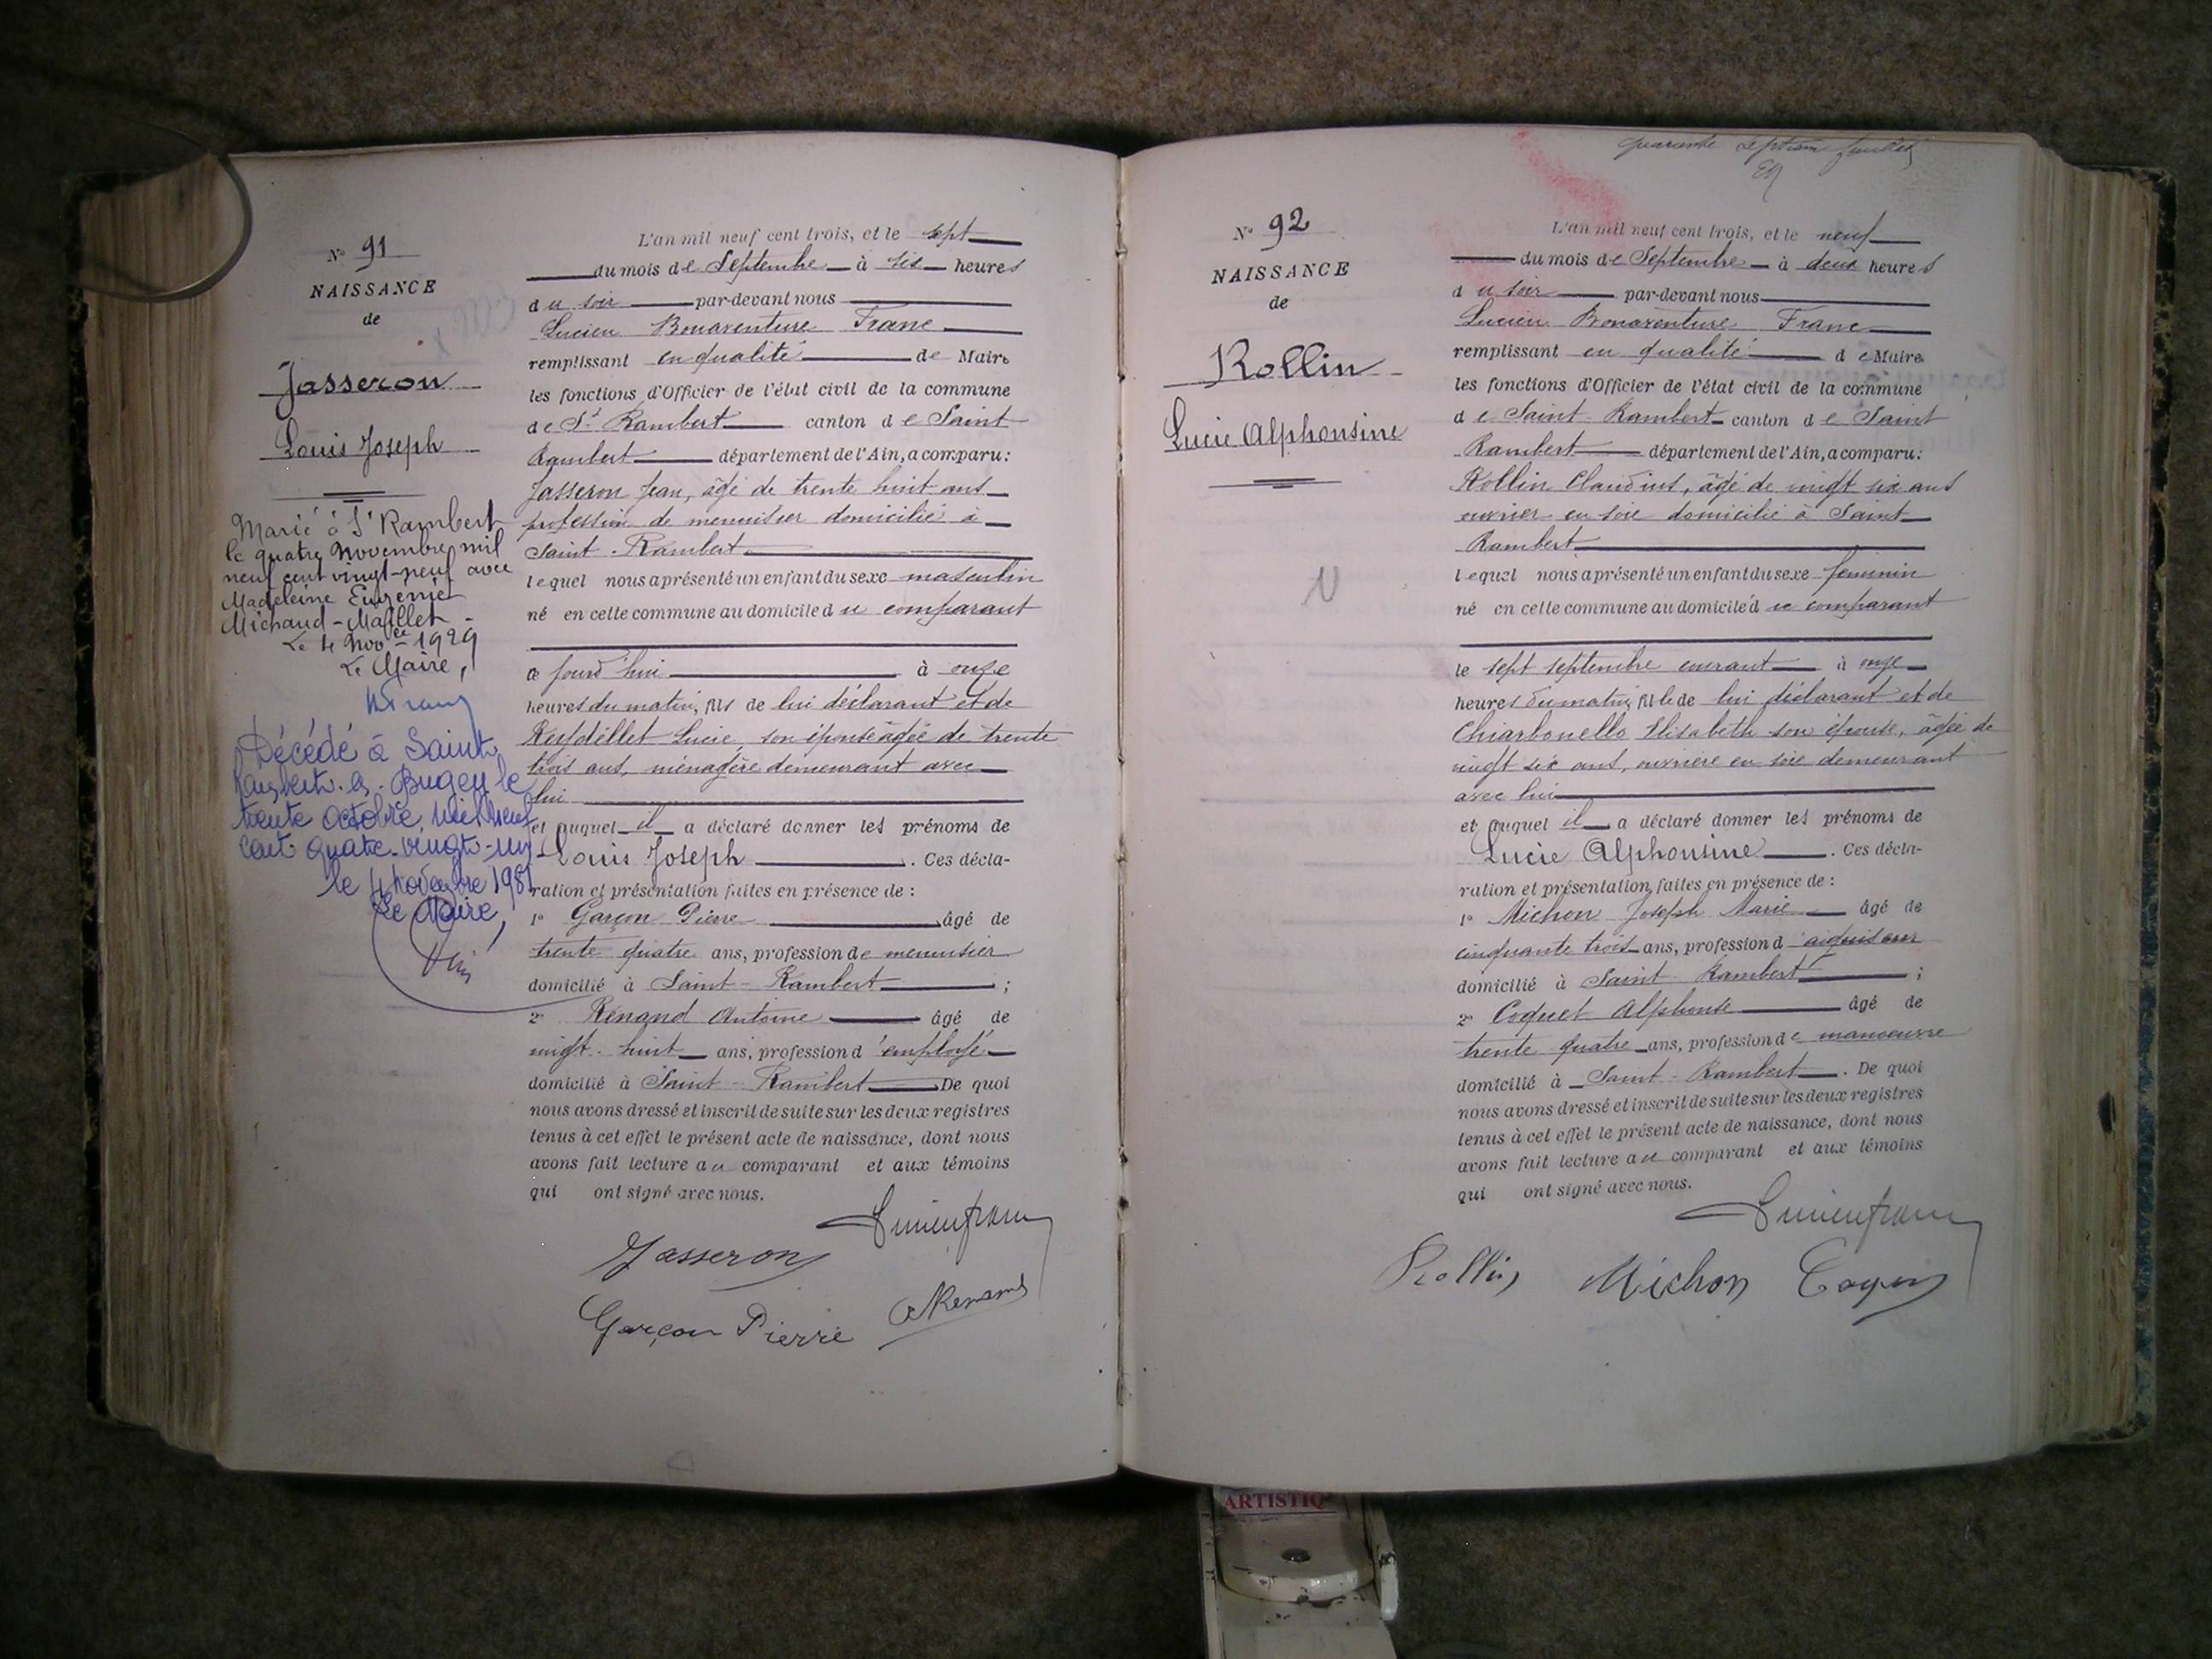 N° 91
NAISSANCE
de
Jasseron
Louis Joseph
Marié à St Rambert
le quatre Novembre mil
neuf cent vingt-neuf avec
Madeleine Eugenie
Michaud-Maillet
Le 4 Novbre 1929
Le Maire,
Décédé à Saint
Rambert-en-Bugey le
trente octobre mil neuf
cent quatre-vingt-un
le 4 Novembre 1981
Le Maire,
L'an mil neuf cent trois, et le sept
du mois de Septembre à six heures
du soir par-devant nous
Lucien Bonaventure Franc
remplissant en qualité de Maire
les fonctions d'Officier de l'état civil de la commune
de St Rambert canton de Saint
Rambert département de l'Ain, a comparu:
Jasseron Jean, âgé de trente huit ans
profession de menuisier domicilié à
Saint-Rambert
lequel nous a présenté un enfant du sexe masculin
né en cette commune au domicile du comparant
ce jourd'hui à onze
heures du matin, fils de lui déclarant et de
Reydellet Lucie, son épouse âgée de trente
trois ans, ménagère demeurant avec
lui
et auquel il a déclaré donner les prénoms de
Louis Joseph. Ces décla-
ration et présentation faites en présence de:
1° Garçon Pierre âgé de
trente quatre ans, profession de menuisier
domicilié à Saint-Rambert;
2° Renand Antoine âgé de
vingt-huit ans, profession d'employé
domicilié à Saint-Rambert De quoi
nous avons dressé et inscrit de suite sur les deux registres
tenus à cet effet le présent acte de naissance, dont nous
avons fait lecture au comparant et aux témoins
qui ont signé avec nous.
Lucien franc
Jasseron
A Renand
Garçon Pierre
quarante septième feuillet
N° 92
NAISSANCE
de
Rollin
Lucie Alphonsine
N
L'an mil neuf cent trois, et le neuf
du mois de Septembre à deux heures
du soir par-devant nous
Lucien Bonaventure Franc
remplissant en qualité de Maire
les fonctions d'Officier de l'état civil de la commune
de Saint-Rambert canton de Saint
Rambert département de l'Ain, a comparu:
Rollin Claudius, âgé de vingt six ans
ouvrier en soie domicilié à Saint
Rambert
lequel nous a présenté un enfant du sexe féminin
né en cette commune au domicile du comparant
le sept septembre courant à onze
heures du matin, fille de lui déclarant et de
Chiarbonello Elisabeth son épouse, âgée de
vingt six ans, ouvrière en soie demeurant
avec lui
et auquel il a déclaré donner les prénoms de
Lucie Alphonsine. Ces décla-
ration et présentation faites en présence de:
1° Michon Joseph Marie âgé de
cinquante trois ans, profession d'aiguiseur
domicilié à Saint-Rambert;
2° Coquet Alphonse âgé de
trente quatre ans, profession de manoeuvre
domicilié à Saint-Rambert. De quoi
nous avons dressé et inscrit de suite sur les deux registres
tenus à cet effet le présent acte de naissance, dont nous
avons fait lecture au comparant et aux témoins
qui ont signé avec nous.
Lucien franc
Rollin Michon
ARTISTIQ